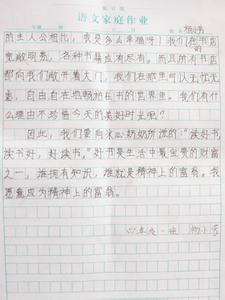 语文家庭作业
的主人公相比，我是多么幸福呀！我们的书店
宽敞明亮，各种书籍应有尽有。而且所有书店
都向我们敞开着大门，我们在那里可以无忧无
虑，自由自在地畅游在书的世界里。我们有什
么理由不珍惜今天的美好时光呢？
因此，我们要向冰心奶奶所说的：“读好书，
读书好，好读书。”好书是生活中最宝贵的财富
之一，谁拥有知识，谁就是精神上的富翁。我
愿意成为精神上的富翁。